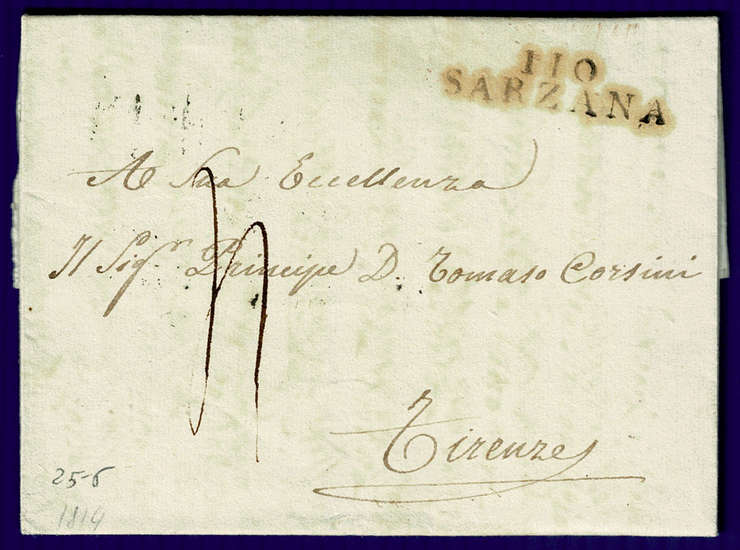 110
SARZANA
A Sua Eccellenza
Il Sigr. Principe D. Tomaso Corsini
Firenze
25-6
1814